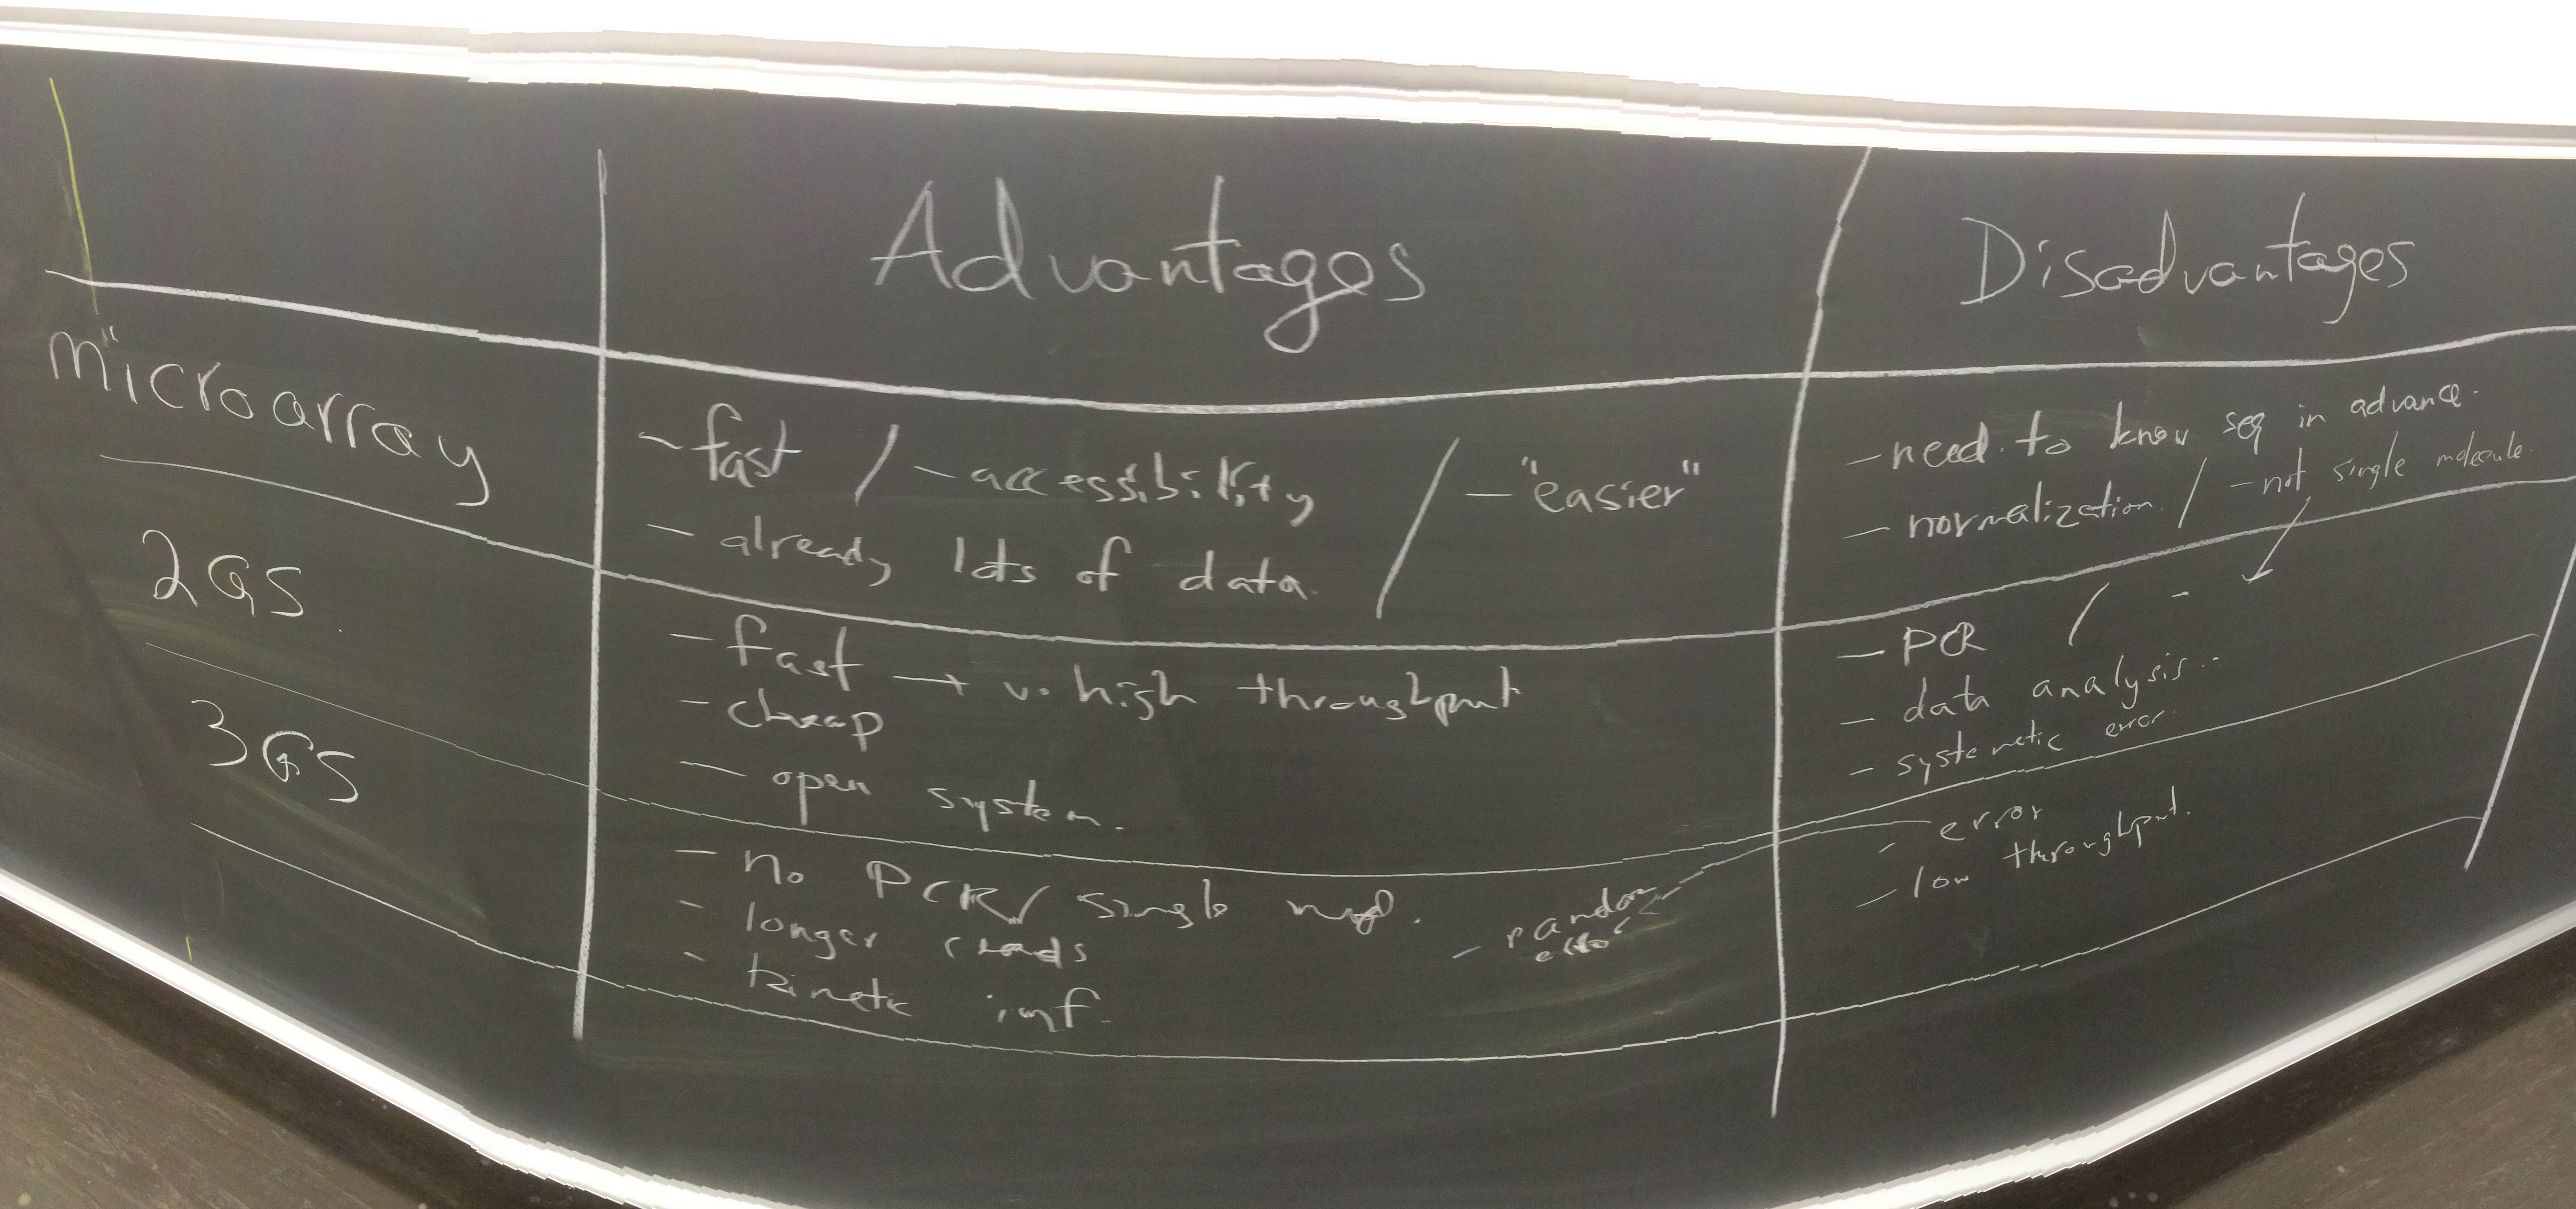 Advantages Disadvantages
microarray
- fast / - accessibility / - "easier"
- already lots of data.
- need to know seq in advance.
- normalization / - not single molecule.
2GS.
- fast → v. high throughput
- cheap
- open system.
- PCR / -
- data analysis...
- systematic error.
3GS
- no PCR / single mol.
- longer reads
- kinetic inf.
- random
error
- error
- low throughput.